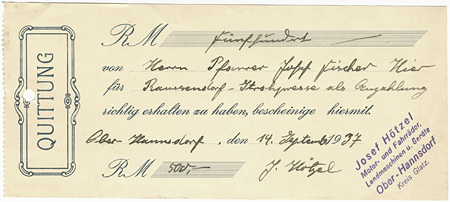 QUITTUNG
RM fünfhundert
von Herrn Pfarrer Josef Fischer Hier
für Ramsendorf-Strohpresse als Anzahlung
richtig erhalten zu haben, bescheinige hiermit.
Ober-Hannsdorf, den 14. September 1937
RM 500,- J. Hötzel
Josef Hötzel
Motor- und Fahrräder,
Landmaschinen u. Geräte
Ober-Hannsdorf
Kreis Glatz.